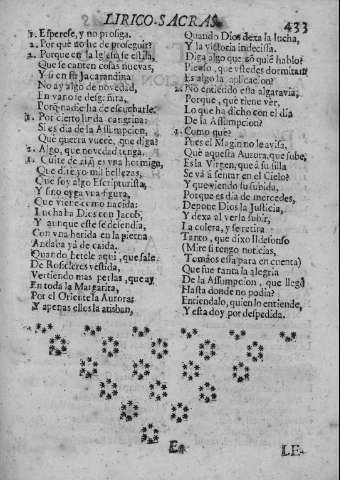 LIRICO-SACRAS. 433
1. Esperese, y no prosiga.
2. Por què no he de proseguir?
2. Porque en la Iglesia se estila,
Que se canten cosas nuevas,
Y si en su Jacarandina
No ay algo de novedad,
En vano se desgañita,
Porque nadie ha de escucharle.
1. Por cierto linda cangrina:
Si es dia de la Assumpcion,
Què querra vuerce, que diga?
2. Algo, que novedad tenga.
1. Quite de aì, es una hormiga,
Que dirè yo mil bellezas,
Que soy algo Escripturista,
Y sino oyga una figura,
Que viene como nacida:
Luchaba Dios con Jacob,
Y aunque este se defendia,
Con una herida en la pierna
Andaba yà de caida.
Quando hetele aqui, que sale
De Rosicleres vestida,
Vertiendo mas perlas, que ay
En toda la Margarita,
Por el Oriente la Aurora:
Y apenas ellos la atisban,
Quando Dios dexa la lucha,
Y la victoria indecissa.
Diga algo que zò quiè hablo?
Pienso, que ustedes dormitan?
Es algo la aplicacion?
2. No entiendo esta algaravia;
Porque, què tiene vèr,
Lo que ha dicho con el dia
De la Assumpcion?
1. Como què?
Pues el Magin no le avisa,
Què aquesta Aurora, que sube,
Es la Virgen, que à su silla
Se và à sentar en el Cielo?
Y que viendo su subida,
Porque es dia de mercedes,
Depone Dios la Justicia,
Y dexa al verla subir,
La colera, y se retira
Tanto, que dixo Ildefonso
(Mire si tengo noticias,
Temaos essa para en cuenta)
Que fue tanta la alegria
De la Assumpcion, que llegò
Hasta donde no podia?
Entiendalo, quien lo entiende,
Y esta doy por despedida.
LE-